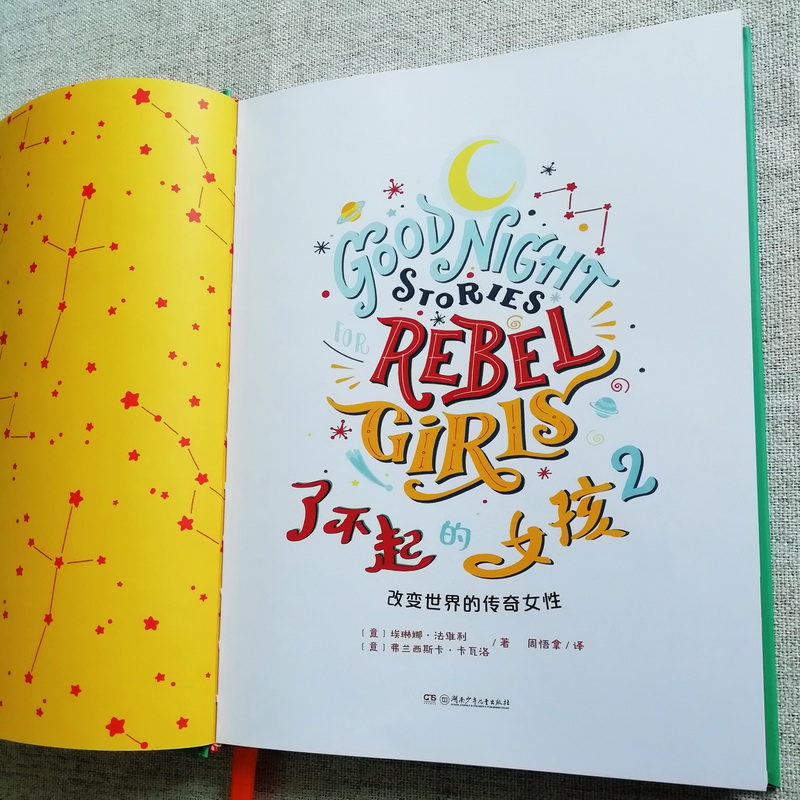 GOOD NIGHT
STORIES
FOR REBEL
GIRLS
了不起的女孩2
改变世界的传奇女性
[意] 埃琳娜·法维利
[意] 弗兰西斯卡·卡瓦洛 /著 周悟拿/译
湖南少年儿童出版社